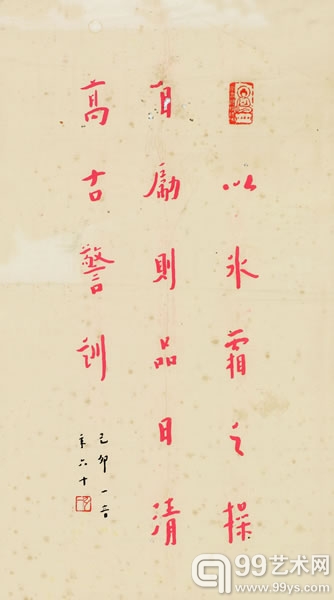 以冰霜之操
自勵則品日清
高古警訓
己卯一音
年六十
99艺术网
www.99ys.com